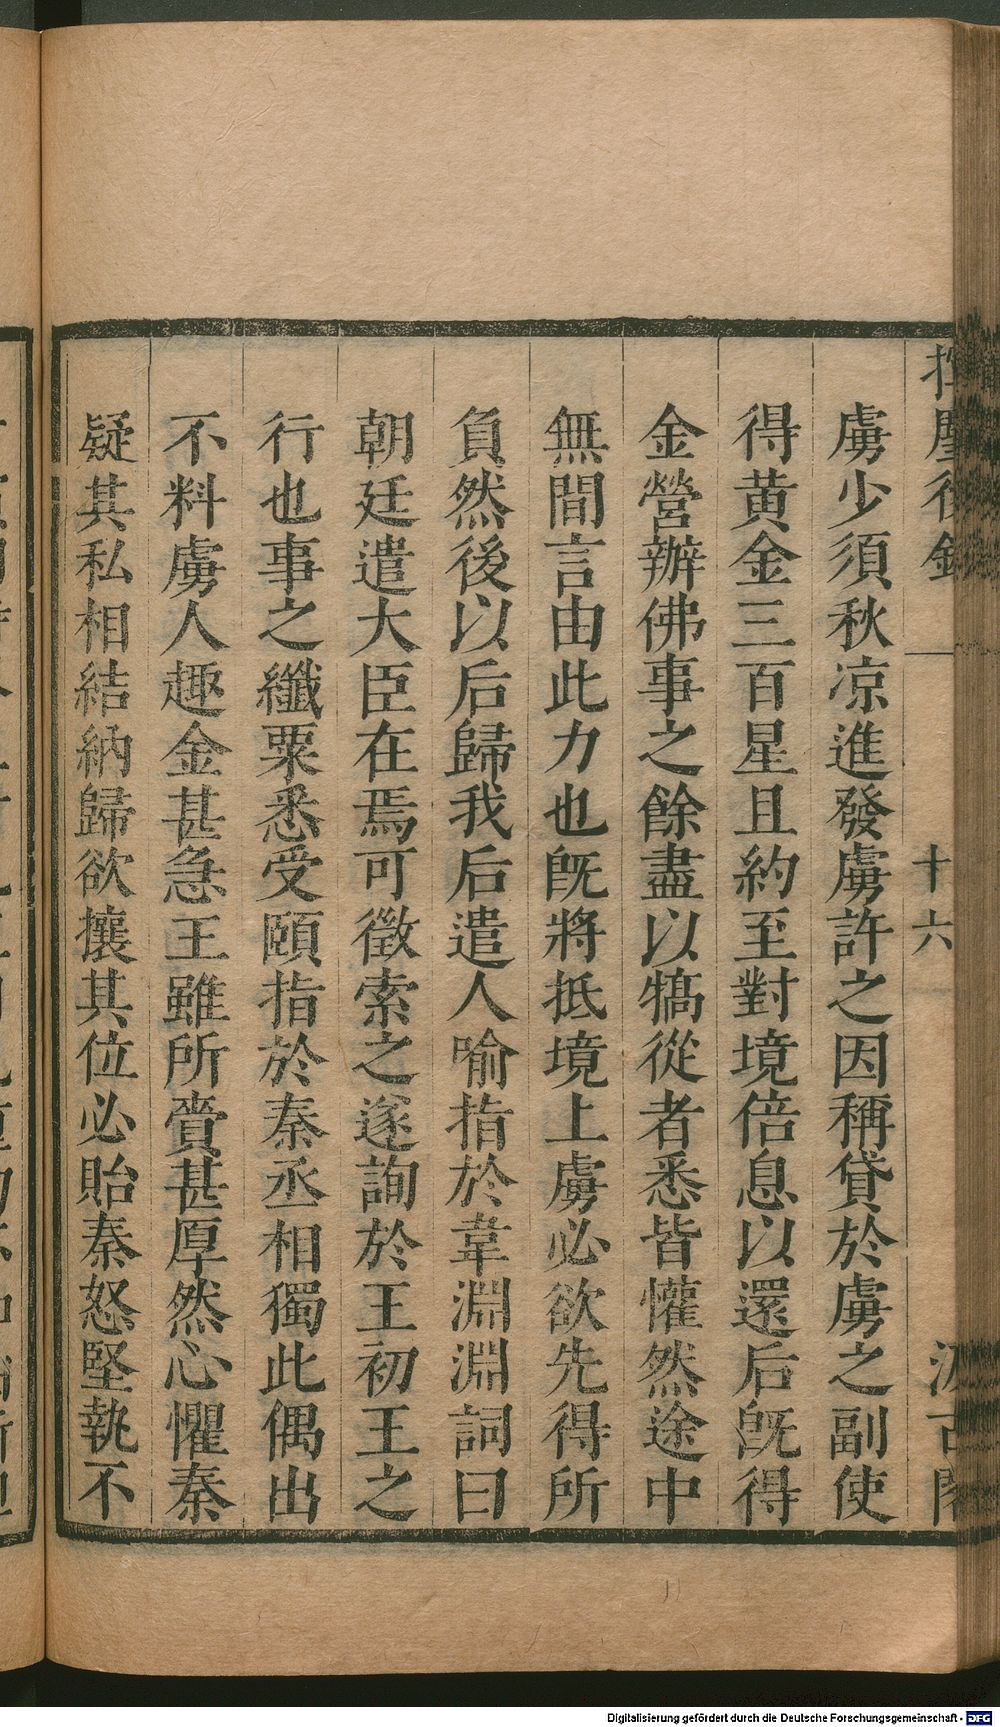 揮麈後錄
十六
汲古閣
虜少須秋凉進發虜許之因稱貸於虜之副使
得黃金三百星且約至對境倍息以還后旣得
金營辦佛事之餘盡以犒從者悉皆懽然途中
無間言由此力也旣將抵境上虜必欲先得所
負然後以后歸我后遣人喻指於韋淵淵詞曰
朝廷遣大臣在焉可徵索之遂詢於王初王之
行也事之纖粟悉受頤指於秦丞相獨此偶出
不料虜人趣金甚急王雖所賫甚厚然心懼秦
疑其私相結納歸欲攘其位必貽秦怒堅執不
Digitalisierung gefördert durch die Deutsche Forschungsgemeinschaft - DFG